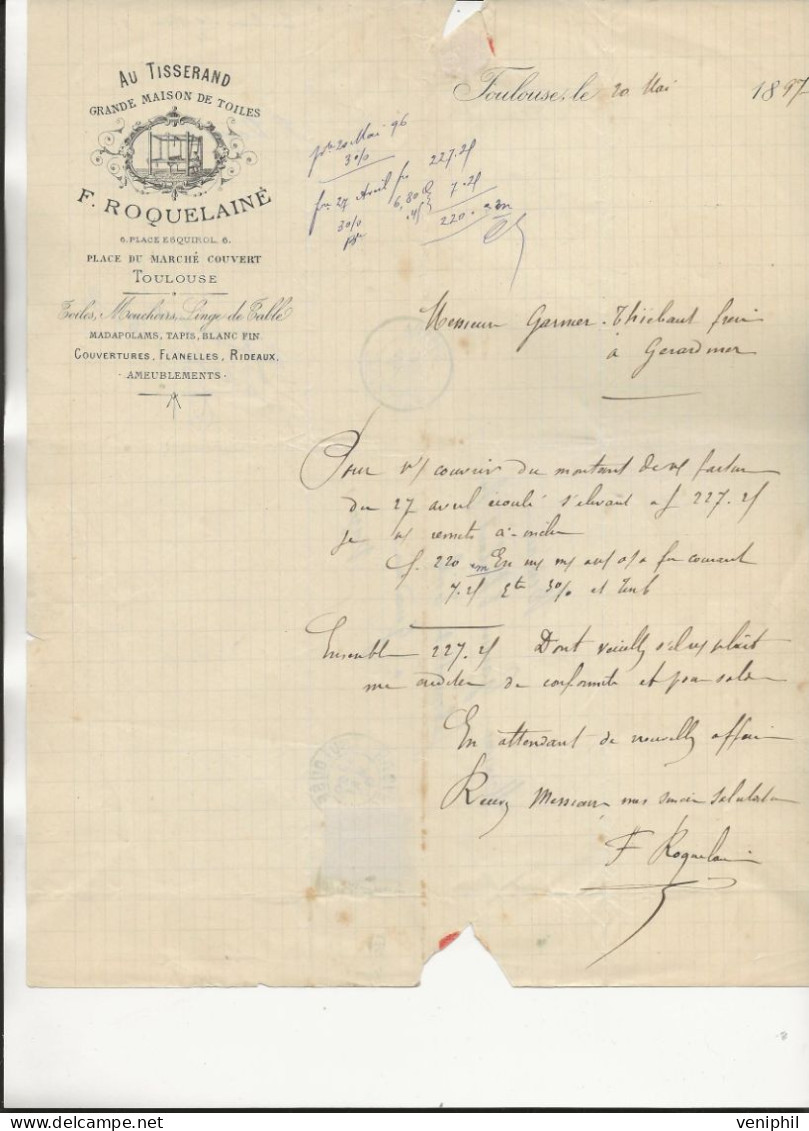 AU TISSERAND
GRANDE MAISON DE TOILES
F. ROQUELAINÉ
6. PLACE ESQUIROL. 6.
PLACE DU MARCHÉ COUVERT
TOULOUSE
Toiles, Mouchoirs, Linge de Table
MADAPOLAMS, TAPIS, BLANC FIN.
COUVERTURES, FLANELLES, RIDEAUX,
- AMEUBLEMENTS -
Toulouse, le 20 Mai 1897
20 Mai 96
3%
fre 27 Avril 227.25
6,80 7.25
30/0 220.
Messieurs Garnier-Thiébaut frères
à Gerardmer
Pour vs couvrir du montant de vs facture
du 27 avril écoulé s'élevant a f 227.25
je vs remets ci-inclus
f. 220 fin courant
7.25 Ete 3% et Timb
Ensemble 227.25 Dont veuillez s'il vs plait
me créditer de conformité et pour solde
En attendant de nouvelles affaires
Recevez Messieurs mes sincères salutations
F Roquelainé
veniphil